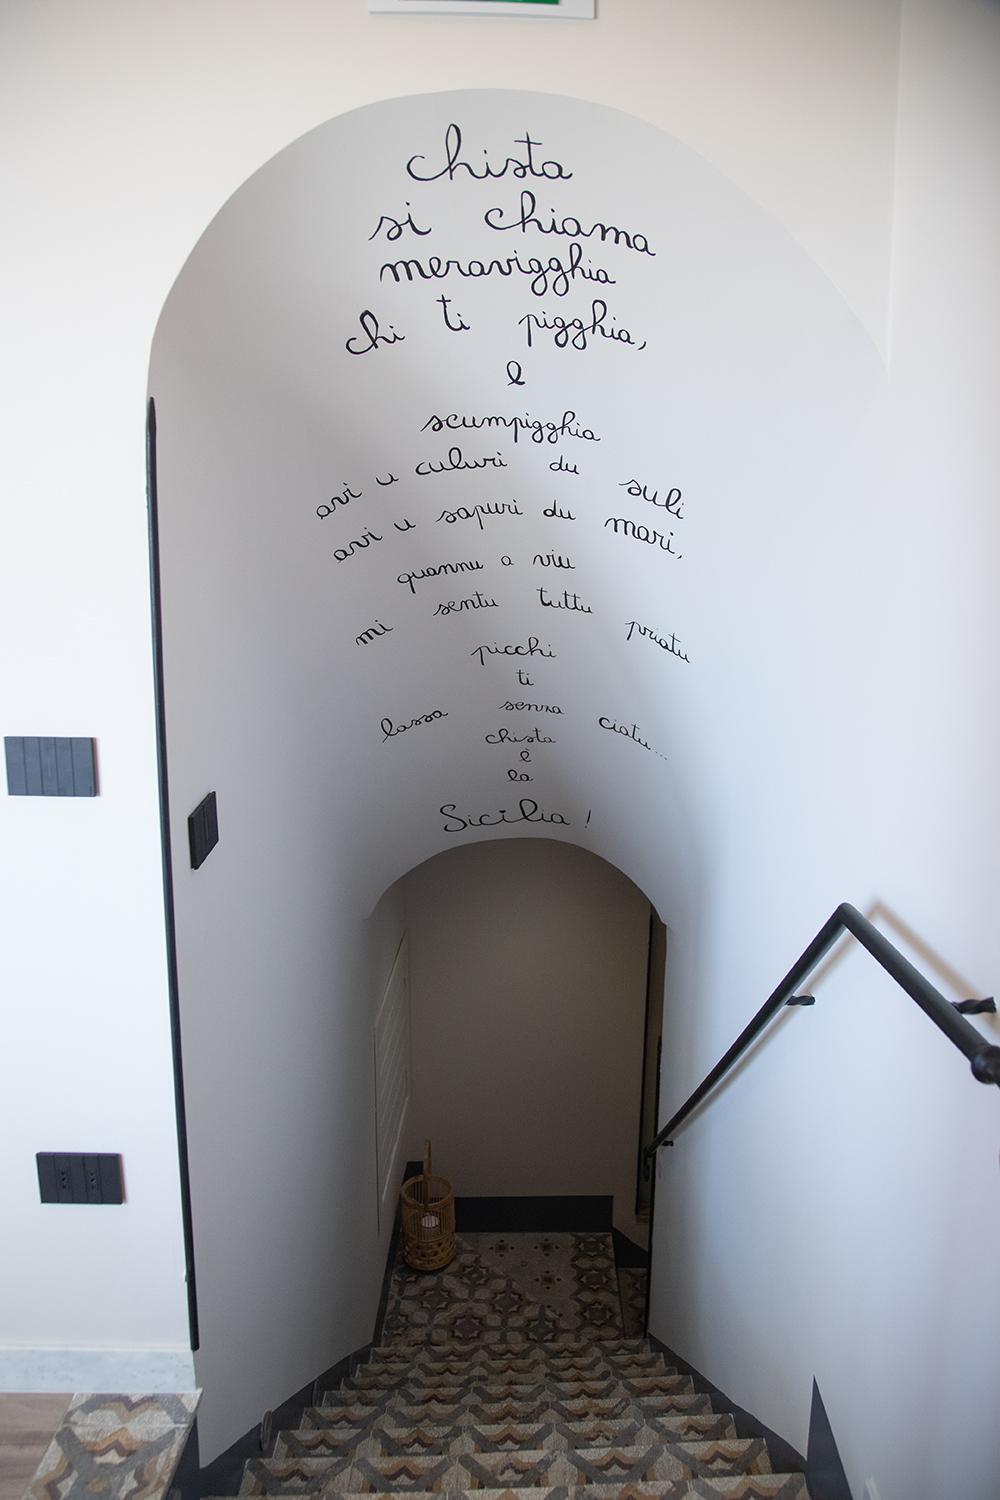 chista
si chiama
meravigghia
chi ti pigghia,
e
scumpigghia
avi u culuri du suli
avi u sapuri du mari,
quannu a viu
mi sentu tuttu priatu
picchi
ti
lassa senza ciatu...
chista
è
la
Sicilia!